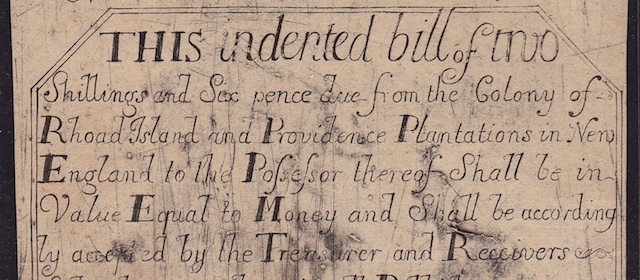 THIS indented bill of two
Shillings and Six pence due from the Colony of
Rhoad Island and Providence Plantations in New
England to the Poſseſsor thereof Shall be in
Value Equal to Money and Shall be according
ly accepted by the Treasurer and Receivers